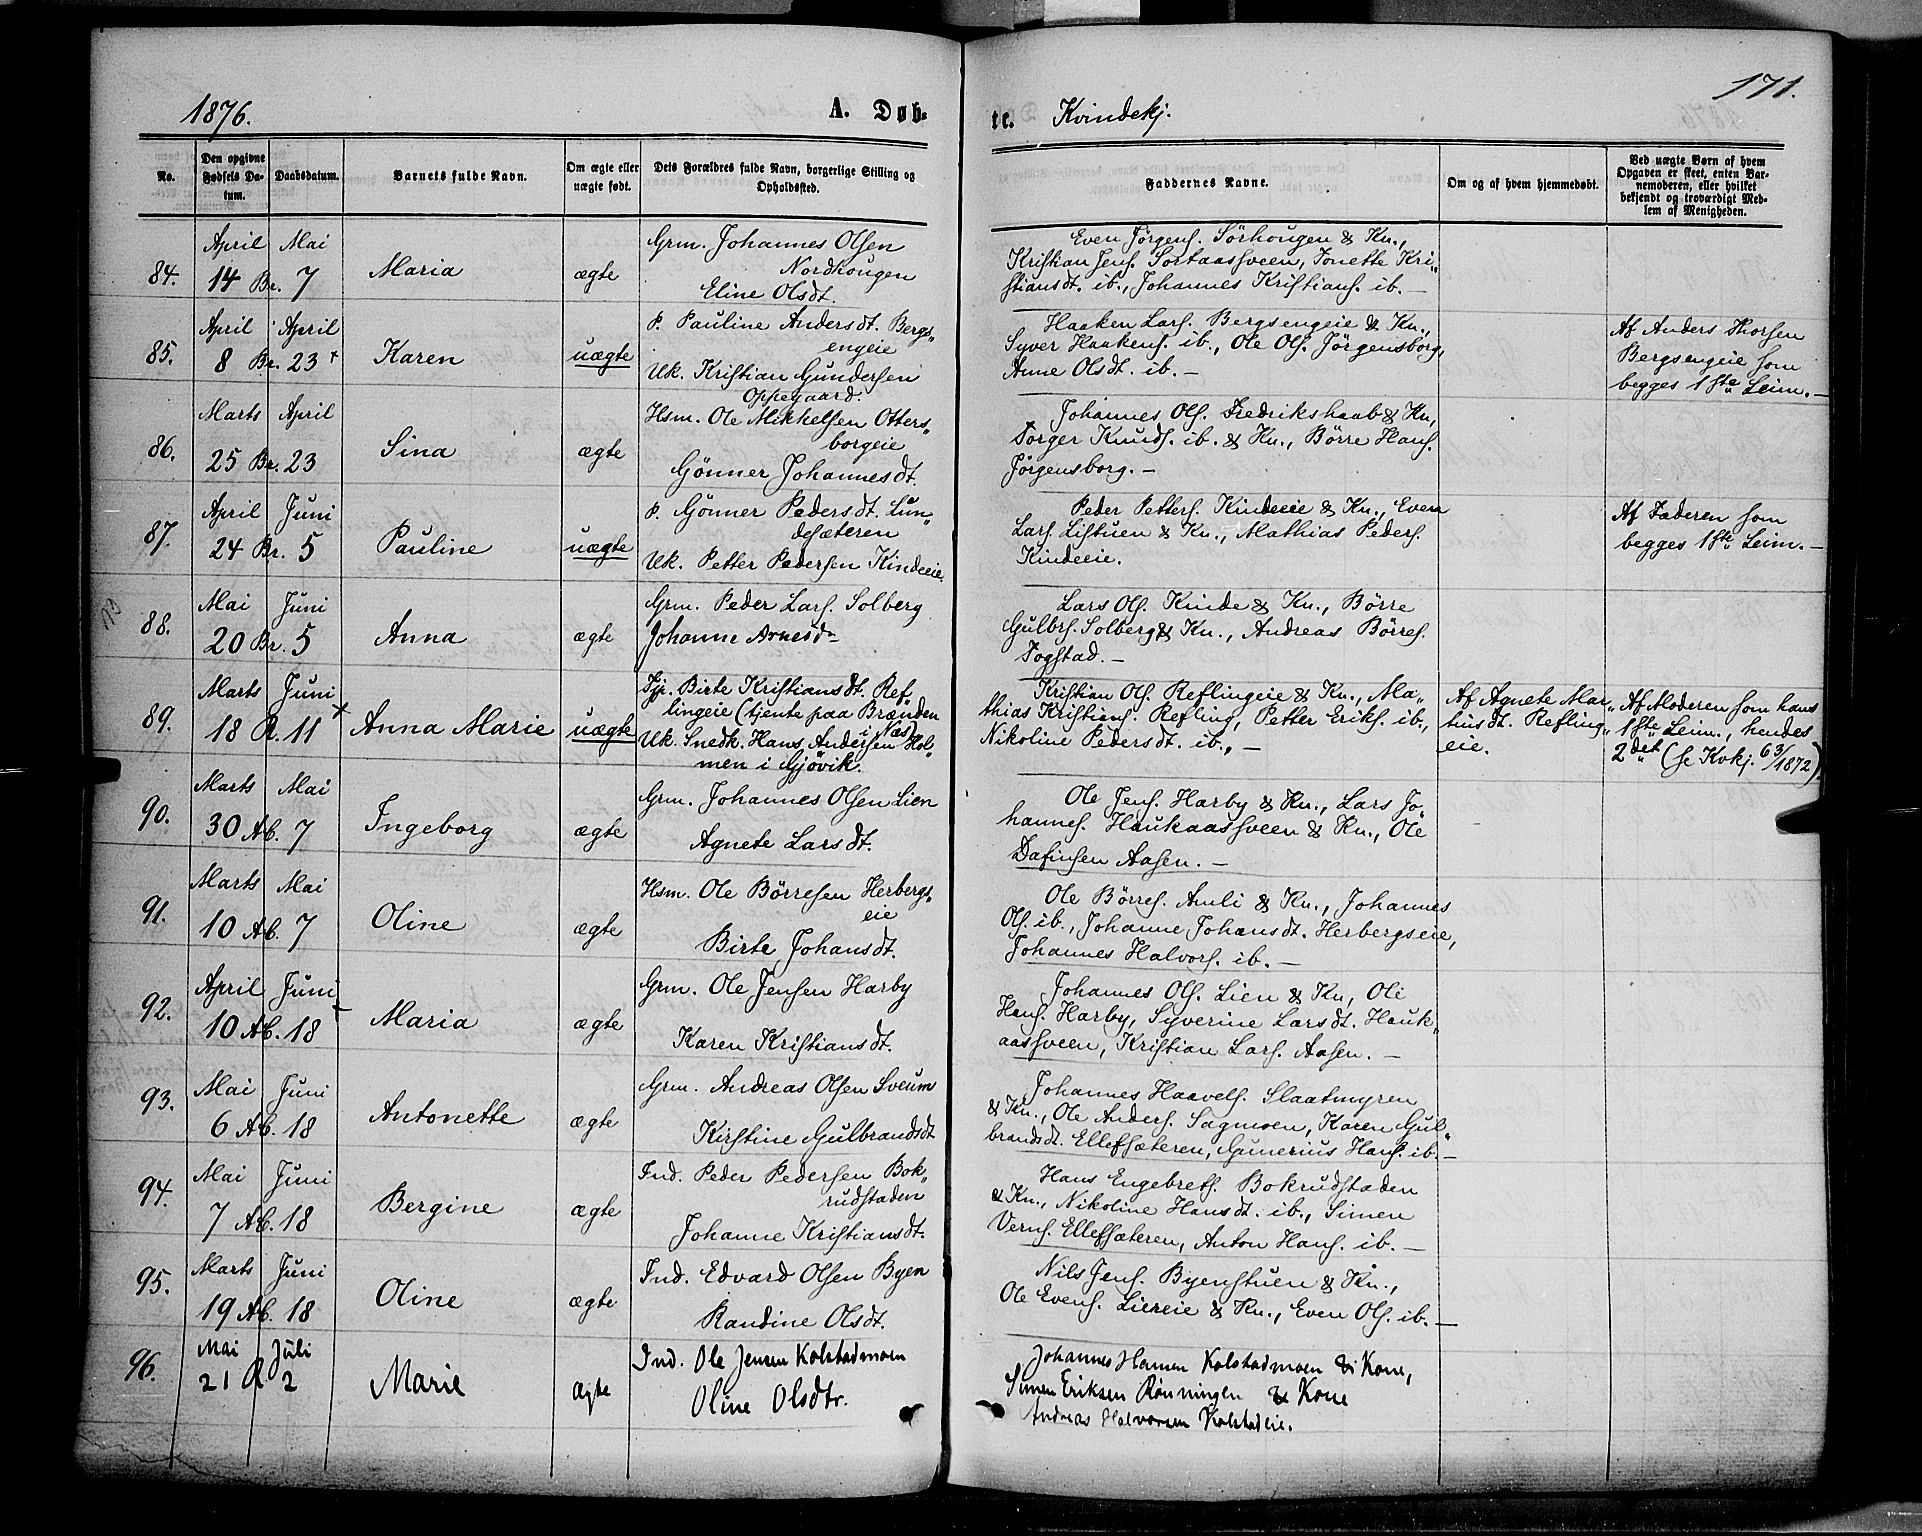 1876.
A. Døb-
te.
Kvindekj.
171.
No.
Den opgivne Fødsels Datum.
Daabsdatum.
Barnets fulde Navn.
Om ægte eller uægte født.
Dets Forældres fulde Navn, borgerlige Stilling og Opholdssted.
Faddernes Navne.
Om og af hvem hjemmedøbt.
Ved uægte Børn af hvem Opgaven er skeet, enten Barnemoderen, eller hvilket bekjendt og troværdigt Medlem af Menigheden.
84.
April 14
Br.
Mai 7
Maria
ægte
Grm. Johannes Olsen
Nordhougen
Eline Olsdt.
Even Jørgens. Sørhougen & Kn.,
Kristian Jens. Sortaassveen, Jonette Kri-
stiansdt. ib., Johannes Kristians. ib. —
85.
April 8
Br.
April 23
Karen
uægte
P. Pauline Andersdt. Bergs-
engeie
Uk. Kristian Gundersen
Oppegaard.
Haaken Lars. Bergsengeie & Kn.,
Syver Haakens. ib., Ole Ols. Jørgensborg,
Anne Olsdt. ib. —
Af Anders Thorsen
Bergsengeie som
begges 1ste Leim. —
86.
Marts 25
Br.
April 23
Sina
ægte
Hsm. Ole Mikkelsen Otters-
borgeie
Gønner Johannesdt.
Johannes Ols. Fredrikshaab & Kn,
Torger Knuds. ib. & Kn., Børre Hans.
Jørgensborg. —
87.
April 24
Br.
Juni 5
Pauline
uægte
P. Gønner Pedersdt. Lun-
desæteren
Uk. Petter Pedersen Kindeeie
Peder Petters. Kindeeie & Kn., Even
Lars. Listuen & Kn., Mathias Peders.
Kindeeie.
Af Faderen som
begges 1ste Leim. —
88.
Mai 20
Br.
Juni 5
Anna
ægte
Grm. Peder Lars. Solberg
Johanne Arnesd
Lars Ols. Kinde & Kn., Børre
Gulbrs. Solberg & Kn., Andreas Børres.
Fogstad. —
89.
Marts 18
R.
Juni 11
Anna Marie
uægte
Pp. Birte Kristiansdt. Ref-
lingeie (tjente paa Brænden
i Næs)
Uk. Snedk. Hans Andersen Hol-
men i Gjøvik.
Kristian Ols. Reflingeie & Kn., Ma-
thias Kristians. Refling, Petter Eriks. ib.,
Nikoline Pedersdt. ib., —
Af Agnete Mar-
tinsdt. Refling-
eie.
Af Moderen som hans
1ste Leim., hendes
2det (se Kvkj. 63/1872)
90.
Marts 30
Ab.
Mai 7
Ingeborg
ægte
Grm. Johannes Olsen Lien
Agnete Larsdt.
Ole Jens. Harby & Kn., Lars Jo-
hannes. Haukaassveen & Kn., Ole
Dafinsen Aasen. —
91.
Marts 10
Ab.
Mai 7
Oline
ægte
Hsm. Ole Børresen Herbergs-
eie
Birte Johansdt.
Ole Børres. Amli & Kn., Johannes
Ols. ib., Johanne Johansdt. Herbergseie,
Johannes Halvors. ib. —
92.
April 10
Ab.
Juni 18
Maria
ægte
Grm. Ole Jensen Harby
Karen Kristiansdt.
Johannes Ols. Lien & Kn, Ole
Hans. Harby, Syverine Larsdt. Hauk-
aassveen, Kristian Lars. Aasen. —
93.
Mai 6
Ab.
Juni 18
Antonette
ægte
Grm. Andreas Olsen Sveum
Kirstine Gulbrandsdt
Johannes Haavels. Slaatmyren
& Kn., Ole Anders. Sagmoen, Karen Gul-
brandsdt. Ellefsæteren, Gunerius Hans. ib. —
94.
Mai 7
Ab.
Juni 18
Bergine
ægte
Ind. Peder Pedersen Bok-
rudstaden
Johanne Kristiansdt.
Hans Engebrets. Bokrudstaden
& Kn., Nikoline Hansdt. ib., Simen
Verns. Ellefsæteren, Anton Hans. ib. —
95.
Marts 19
Ab.
Juni 18
Oline
ægte
Ind. Edvard Olsen Byen
Randine Olsdt.
Nils Jens. Byenstuen & Kn.,
Ole Evens. Liereie & Kn., Even Ols. ib. —
96.
Mai 21
R
Juli 2
Marie
ægte
Ind. Ole Jensen Kolstadmoen
Oline Olsdtr.
Johannes Hansen Kolstadmoen & Kone,
Simen Eriksen Rønningen & Kone
Andreas Halvorsen Kolstadeie.